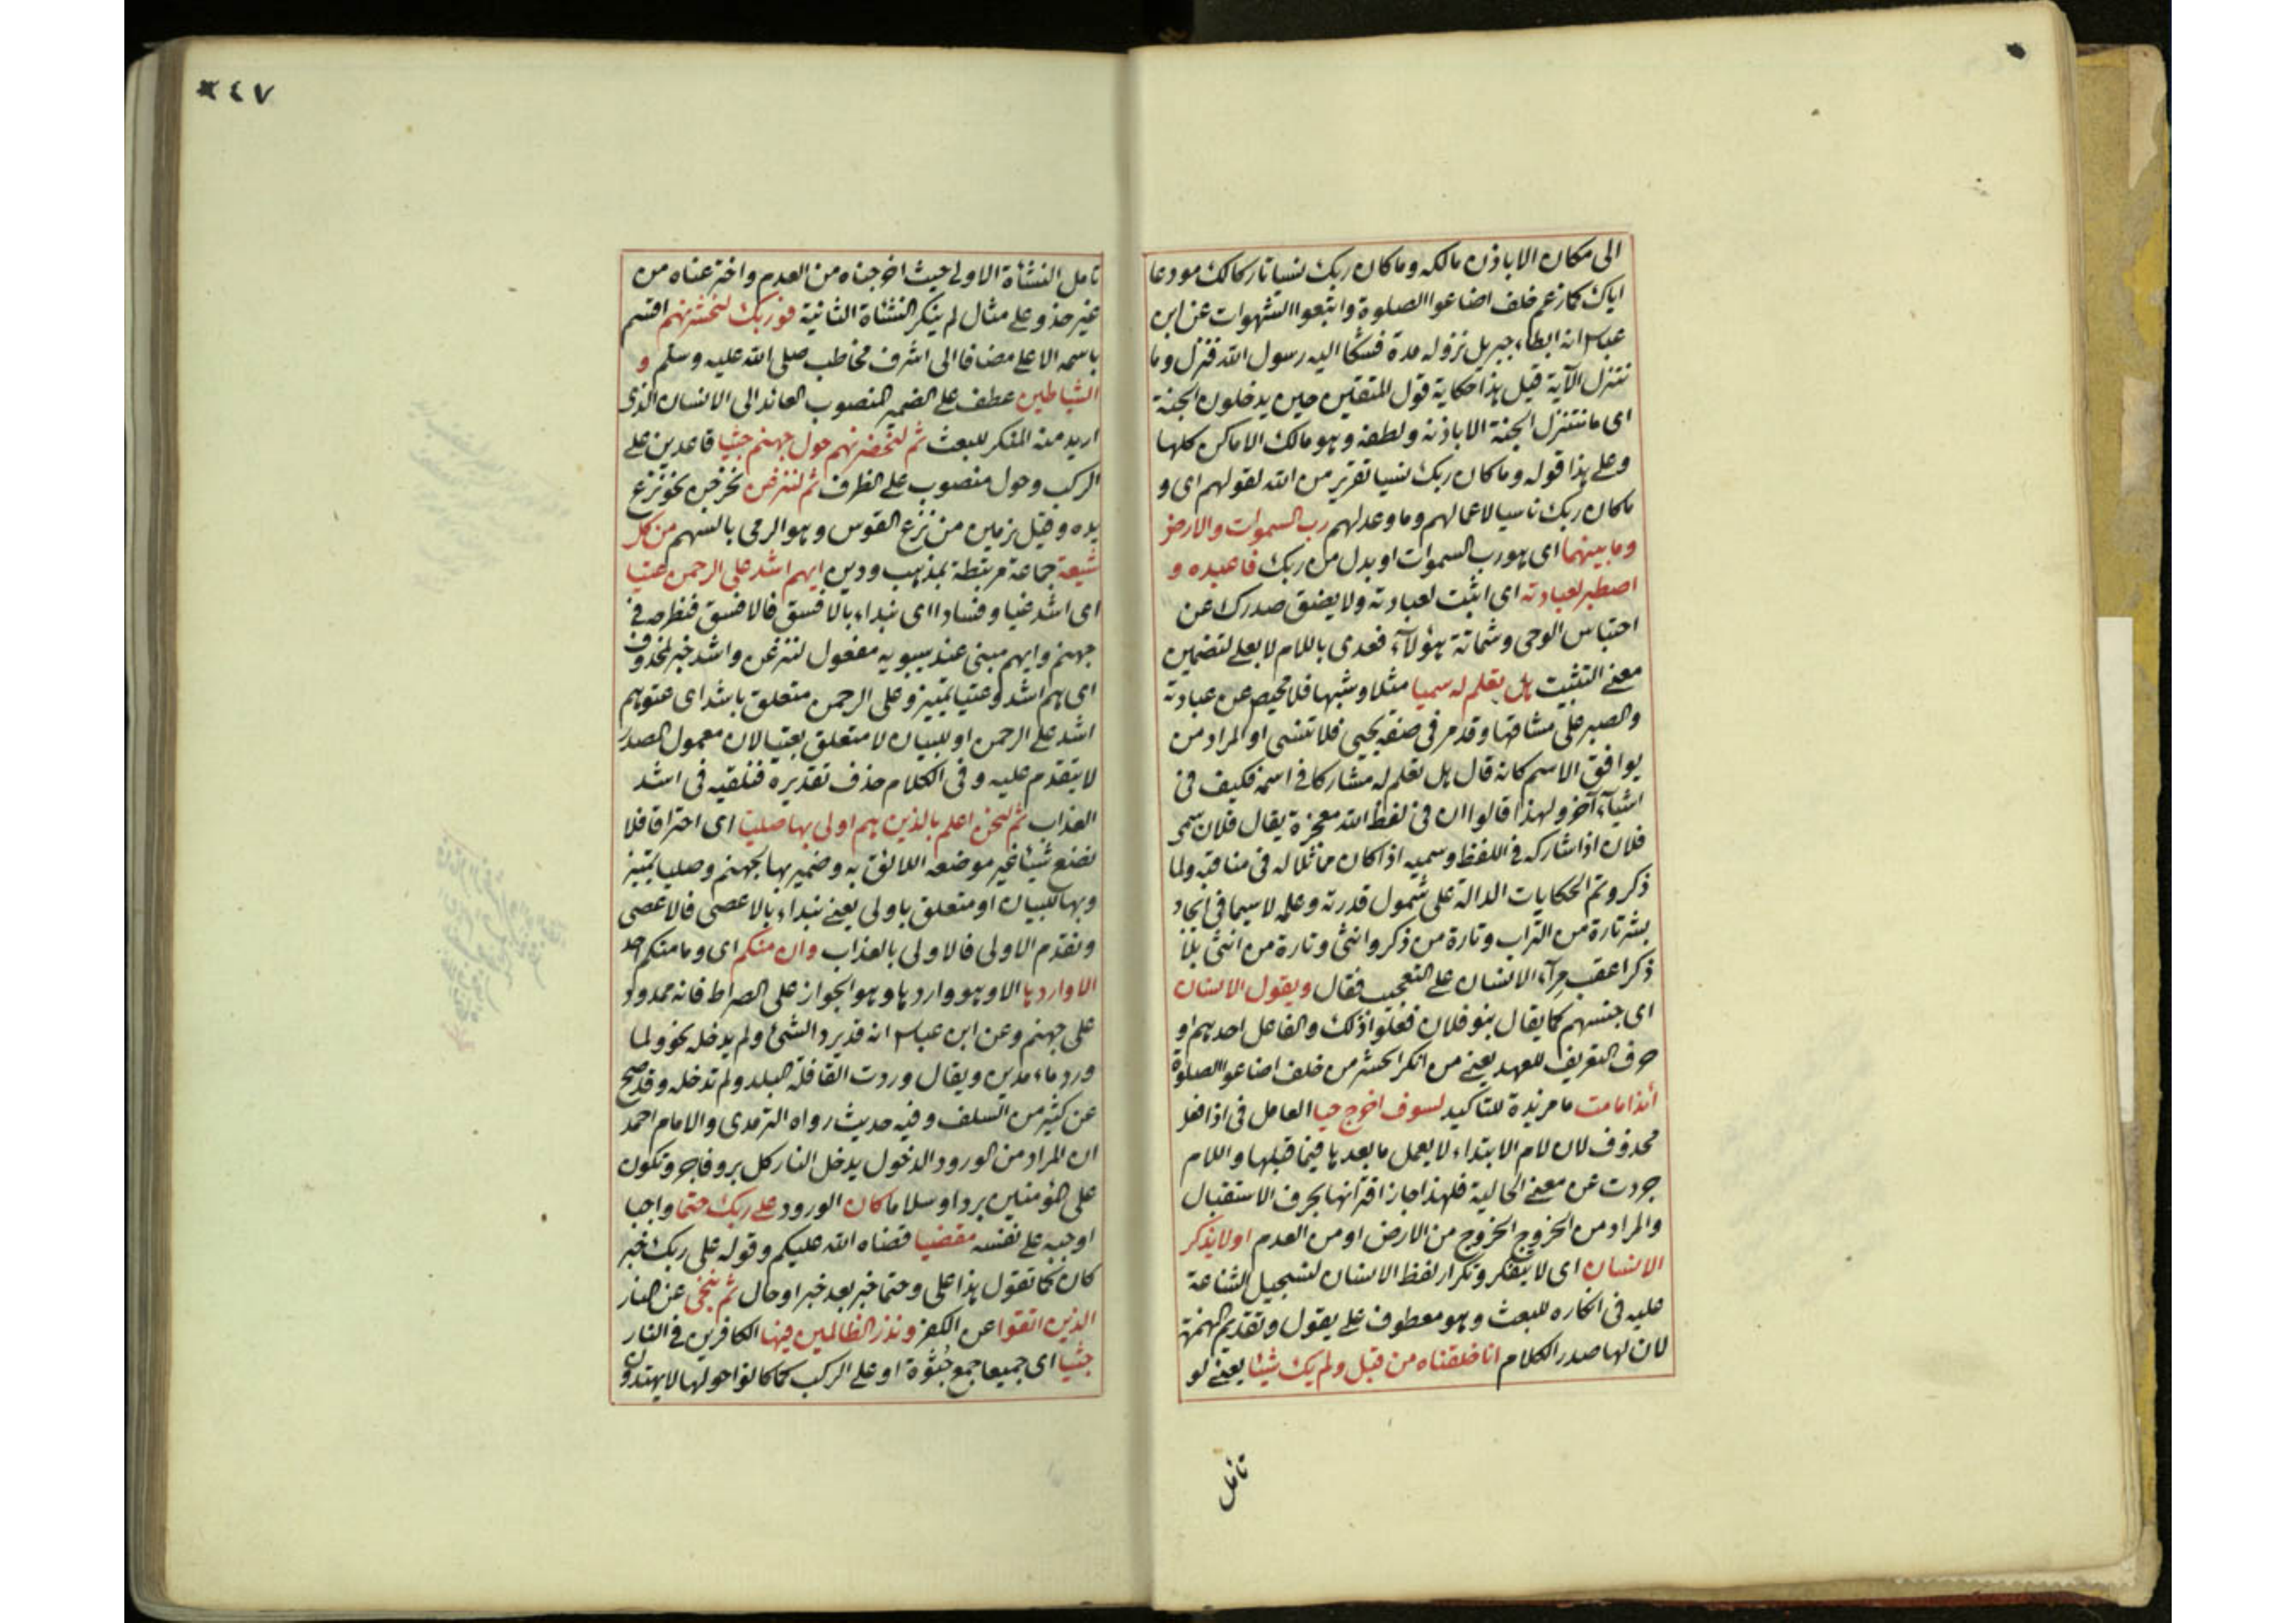 الى مكان الا باذن مالكه وما كان ربك نسيا تاركا لك مودعا
اياك كما زعم خلف اضاعوا الصلوة واتبعوا الشهوات عن ابن
عباس انه ابطاء جبريل نزوله مدة فشكا اليه رسول الله فنزل وما
نتنزل الآية قيل هذا حكاية قول المتقين حين يدخلون الجنة
اى ما نتنزل الجنة الا باذنه ولطفه وهو مالك الاماكن كلها
وعلى هذا قوله وما كان ربك نسيا تقرير من الله لقولهم اى و
ماكان ربك ناسيا لاعمالهم وما وعد لهم رب السموات والارض
وما بينهما اى هو رب السموات او بدل من ربك فاعبده و
اصطبر لعبادته اى اثبت لعبادته ولا يضيق صدرك عن
احتباس الوحى وشماتة هؤلاء فعدى باللام لا بعلى لتضمين
معنى التثبيت هل تعلم له سميا مثلا وشبها فلا محيص عن عبادته
والصبر على مشاقها وقد مر فى صفة يحيى فلا تنسى او المراد من
يوافق الاسم كانه قال هل تعلم له مشاركا فى اسمه فكيف فى
اشياء آخر ولهذا قالوا ان فى لفظ الله معجزة يقال فلان سمى
فلان اذا شاركه فى اللفظ وسميه اذا كان مماثلا له فى مناقبه ولما
ذكر وتم الحكايات الدالة على شمول قدرته وعلمه لاسيما فى ايجاد
بشر تارة من التراب وتارة من ذكر وانثى وتارة من انثى بلا
ذكر اعقب مرآء الانسان على التعجيب فقال ويقول الانسان
اى جنسهم كما يقال بنو فلان فعلوا ذلك والفاعل احدهم او
حرف التعريف للعهد يعنى من انكر الحشر من خلف اضاعوا الصلوة
أئذا ما مت ما مزيدة للتاكيد لسوف اخرج حيا العامل فى اذا فعل
محذوف لان لام الابتداء لا يعمل ما بعدها فيما قبلها واللام
جردت عن معنى الحالية فلهذا جاز اقترانها بحرف الاستقبال
والمراد من الخروج الخروج من الارض او من العدم اولا يذكر
الانسان اى لا يتفكر وتكرار لفظ الانسان لتسجيل الشناعة
عليه فى انكاره للبعث وهو معطوف على يقول وتقديم الهمزة
لان لها صدر الكلام انا خلقناه من قبل ولم يك شيئا يعنى لو
تامل
٢٤٧
تامل النشأة الاولى حيث اخرجناه من العدم واخترعناه من
غير حذو على مثال لم ينكر النشأة الثانية فوربك لنحشرنهم اقسم
باسمه الاعلى مضافا الى اشرف مخاطب صلى الله عليه وسلم و
الشياطين عطف على الضمير المنصوب العائد الى الانسان الذى
اريد منه المنكر للبعث ثم لنحضرنهم حول جهنم جثيا قاعدين على
الركب وحول منصوب على الظرف ثم لننزعن نخرجن نحو نزع
يده وقيل نرمين من نزع القوس وهو الرمى بالسهم من كل
شيعة جماعة مرتبطة بمذهب ودين ايهم اشد على الرحمن عتيا
اى اشد غيا وفسادا اى نبداء بالافسق فالافسق فنطرحه فى
جهنم وايهم مبنى عند سيبويه مفعول لننزعن واشد خبر لمحذوف
اى هم اشد وعتيا تمييز وعلى الرحمن متعلق باشد اى عتوهم
اشد على الرحمن او للبيان لا متعلق بعتيا لان معمول المصدر
لا يتقدم عليه وفى الكلام حذف تقديره فنلقيه فى اشد
العذاب ثم لنحن اعلم بالذين هم اولى بها صليا اى احتراقا فلا
نضع شيئا غير موضعه اللائق به وضمير بها لجهنم وصليا تمييز
وبها للبيان او متعلق باولى يعنى نبداء بالاعصى فالاعصى
ونقدم الاولى فالاولى بالعذاب وان منكم اى وما منكم احد
الا واردها الا وهو واردها وهو الجواز على الصراط فانه ممدود
على جهنم وعن ابن عباس انه قد يرد الشئ ولم يدخله نحو ولما
ورد ماء مدين ويقال وردت القافلة البلد ولم تدخله وقد صح
عن كثير من السلف وفيه حديث رواه الترمذى والامام احمد
ان المراد من الورود الدخول يدخل النار كل بر وفاجر وتكون
على المؤمنين بردا وسلاما كان الورود على ربك حتما واجبا
اوجبه على نفسه مقضيا قضاه الله عليكم وقوله على ربك خبر
كان كما تقول هذا على وحتما خبر بعد خبر او حال ثم ننجى عن النار
الذين اتقوا عن الكفر ونذر الظالمين فيها الكافرين فى النار
جثيا اى جميعا جمع جثوة او على الركب كما كانوا حولها لا يهتدون